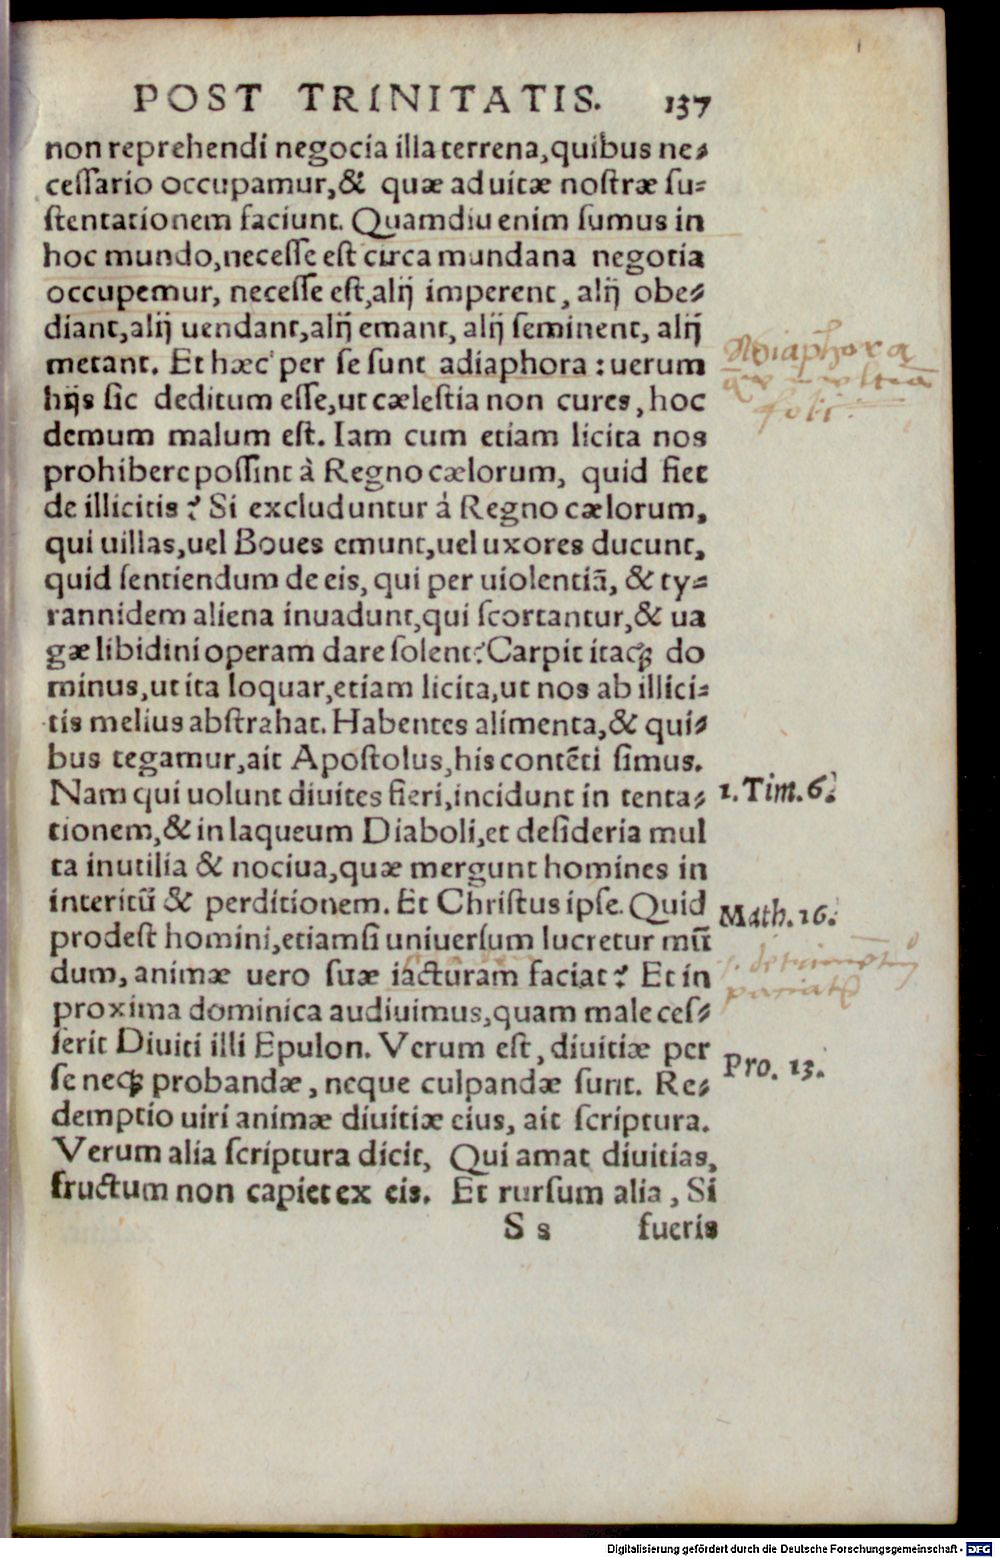 POST TRINITATIS. 137
non reprehendi negocia illa terrena, quibus ne⸗
cessario occupamur, & quæ ad uitæ nostræ su⸗
stentationem faciunt. Quamdiu enim sumus in
hoc mundo, necesse est circa mundana negotia
occupemur, necesse est, alij imperent, alij obe⸗
diant, alij uendant, alij emant, alij seminent, alij
metant. Et hæc per se sunt adiaphora : uerum
hijs sic deditum esse, ut cælestia non cures, hoc
demum malum est. Iam cum etiam licita nos
prohibere possint à Regno cælorum, quid fiet
de illicitis? Si excluduntur á Regno cælorum,
qui uillas, uel Boues emunt, uel uxores ducunt,
quid sentiendum de eis, qui per uiolentiã, & ty⸗
rannidem aliena inuadunt, qui scortantur, & ua
gæ libidini operam dare solent? Carpit itaqꝫ do
minus, ut ita loquar, etiam licita, ut nos ab illici⸗
tis melius abstrahat. Habentes alimenta, & qui⸗
bus tegamur, ait Apostolus, his contẽti simus.
Nam qui uolunt diuites fieri, incidunt in tenta⸗
tionem, & in laqueum Diaboli, et desideria mul
ta inutilia & nociua, quæ mergunt homines in
interitũ & perditionem. Et Christus ipse. Quid
prodest homini, etiamsi uniuersum lucretur mũ
dum, animæ uero suæ iacturam faciat? Et in
proxima dominica audiuimus, quam male ces⸗
serit Diuiti illi Epulon. Verum est, diuitiæ per
se neqꝫ probandæ, neque culpandæ sunt. Re⸗
demptio uiri animæ diuitiæ eius, ait scriptura.
Verum alia scriptura dicit, Qui amat diuitias,
fructum non capiet ex eis. Et rursum alia, Si
S s fueris
Adiaphora
1. Tim. 6.
Math. 16.
Pro. 13.
Digitalisierung gefördert durch die Deutsche Forschungsgemeinschaft - DFG